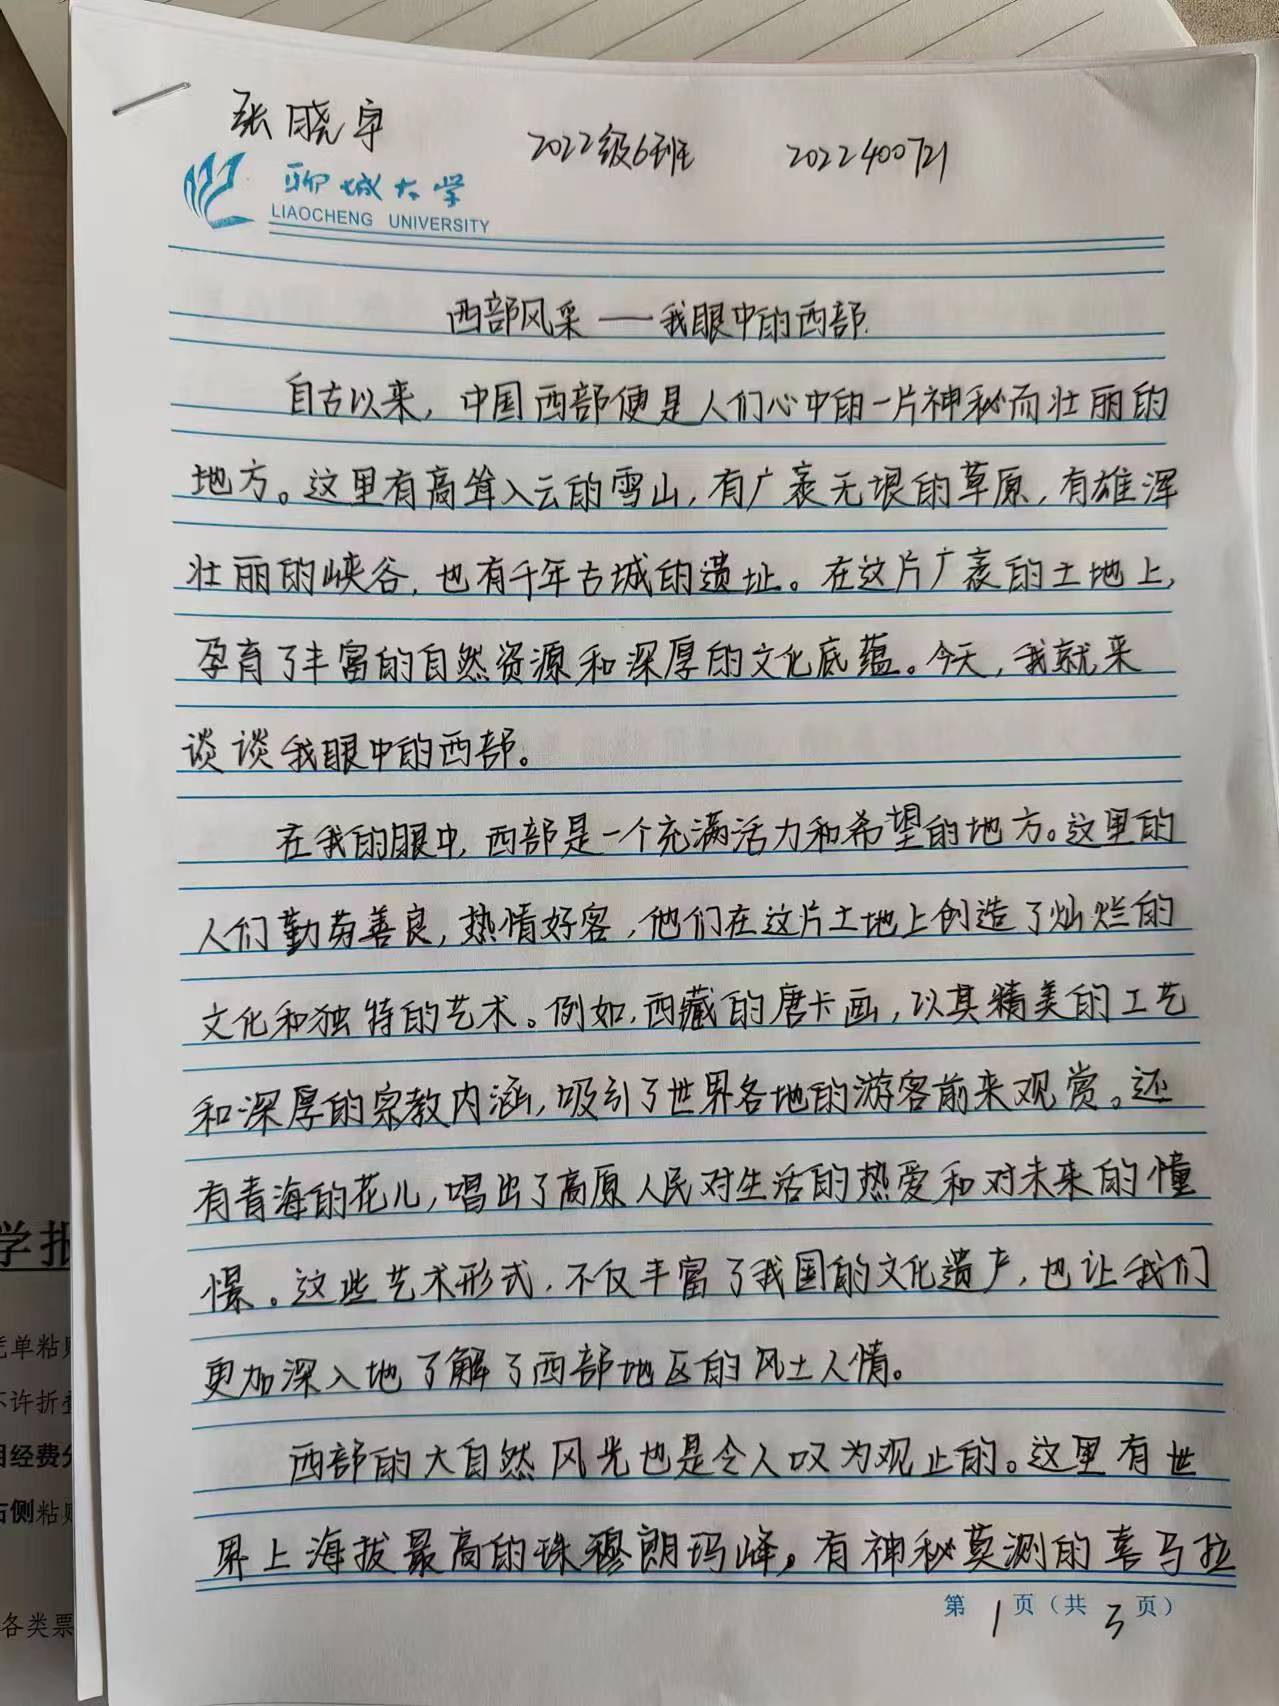 张晓宇 2022级6班 2022400721
聊城大学
LIAOCHENG UNIVERSITY
西部风采——我眼中的西部
自古以来，中国西部便是人们心中的一片神秘而壮丽的
地方。这里有高耸入云的雪山，有广袤无垠的草原，有雄浑
壮丽的峡谷，也有千年古城的遗址。在这片广袤的土地上，
孕育了丰富的自然资源和深厚的文化底蕴。今天，我就来
谈谈我眼中的西部。
在我的眼中，西部是一个充满活力和希望的地方。这里的
人们勤劳善良，热情好客，他们在这片土地上创造了灿烂的
文化和独特的艺术。例如，西藏的唐卡画，以其精美的工艺
和深厚的宗教内涵，吸引了世界各地的游客前来观赏。还
有青海的花儿，唱出了高原人民对生活的热爱和对未来的憧
憬。这些艺术形式，不仅丰富了我国的文化遗产，也让我们
更加深入地了解了西部地区的风土人情。
西部的大自然风光也是令人叹为观止的。这里有世
界上海拔最高的珠穆朗玛峰，有神秘莫测的喜马拉
第1页（共3页）
学报
单粘贴
不许折叠
经费分
右侧粘贴
各类票